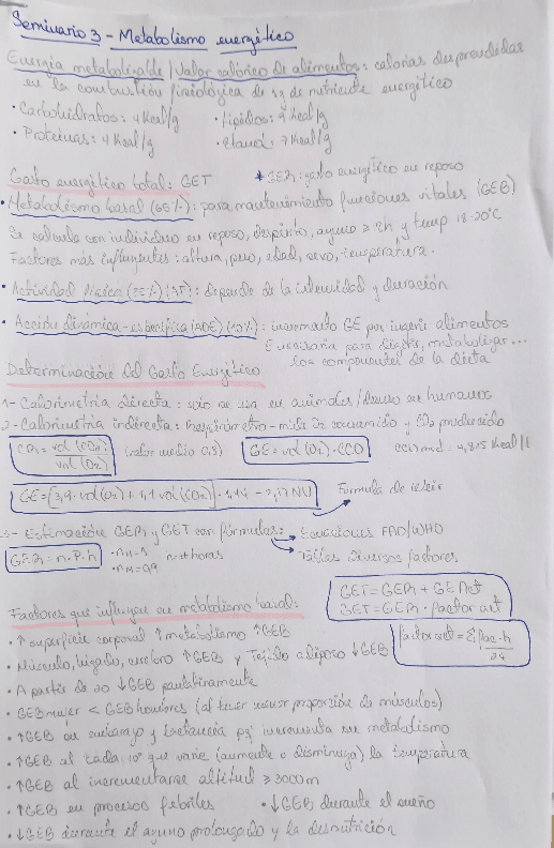 Seminario 3 - Metabolismo energético
Energía metabolizable / Valor calórico de alimentos: calorías desprendidas
en la combustión fisiológica de 1g de nutriente energético
· Carbohidratos: 4 Kcal/g · Lípidos: 9 Kcal/g
· Proteínas: 4 Kcal/g · Etanol: 7 Kcal/g
Gasto energético total: GET * GER: gasto energético en reposo
· Metabolismo basal (65%): para mantenimiento funciones vitales (GEB)
Se calcula con individuo en reposo, despierto, ayuno ≥ h y temp 18-20°C
Factores más influyentes: altura, peso, edad, sexo, temperatura.
· Actividad física (25%) (AF): depende de la intensidad y duración
· Acción dinámica-específica (ADE) (10%): incremento GE por ingerir alimentos
E necesaria para digerir, metabolizar...
los componentes de la dieta
Determinación del Gasto Energético
1- Calorimetría directa: solo se usa en animales / humanos
2- Calorimetría indirecta: Respirómetro - mide O₂ consumido y CO₂ producido
CR = vol (CO₂) / vol (O₂) (valor medio 0,8) GE = vol (O₂) · ECO 4,825 Kcal/l
GE = [3,9 · vol (O₂) + 1,1 vol (CO₂)] · 1,44 - 2,17 NU
Fórmula de Weir
3- Estimación GER y GET con fórmulas: Ecuaciones FAO/WHO
Tablas diversos factores
GER = n · P · h · n = nº horas
GET = GER + GE Act
GET = GER · factor act
Factores que influyen en metabolismo basal:
factor act = Σ fac · h / 24
· ↑ superficie corporal ↑ metabolismo ↑ GEB
· Músculo, hígado, cerebro ↑ GEB y Tejido adiposo ↓ GEB
· A partir de 20 ↓ GEB paulatinamente
· GEB mujer < GEB hombres (al tener menor proporción de músculos)
· ↑ GEB en embarazo y lactancia pq incrementa su metabolismo
· ↑ GEB al cada 10° que varíe (aumente o disminuya) la temperatura
· ↑ GEB al incrementarse altitud ≥ 3000m
· ↑ GEB en procesos febriles · ↓ GEB durante el sueño
· ↓ GEB durante el ayuno prolongado y la desnutrición